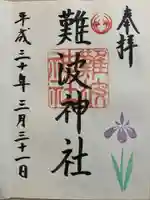 奉拝
難波神社
平成三十年三月三十一日